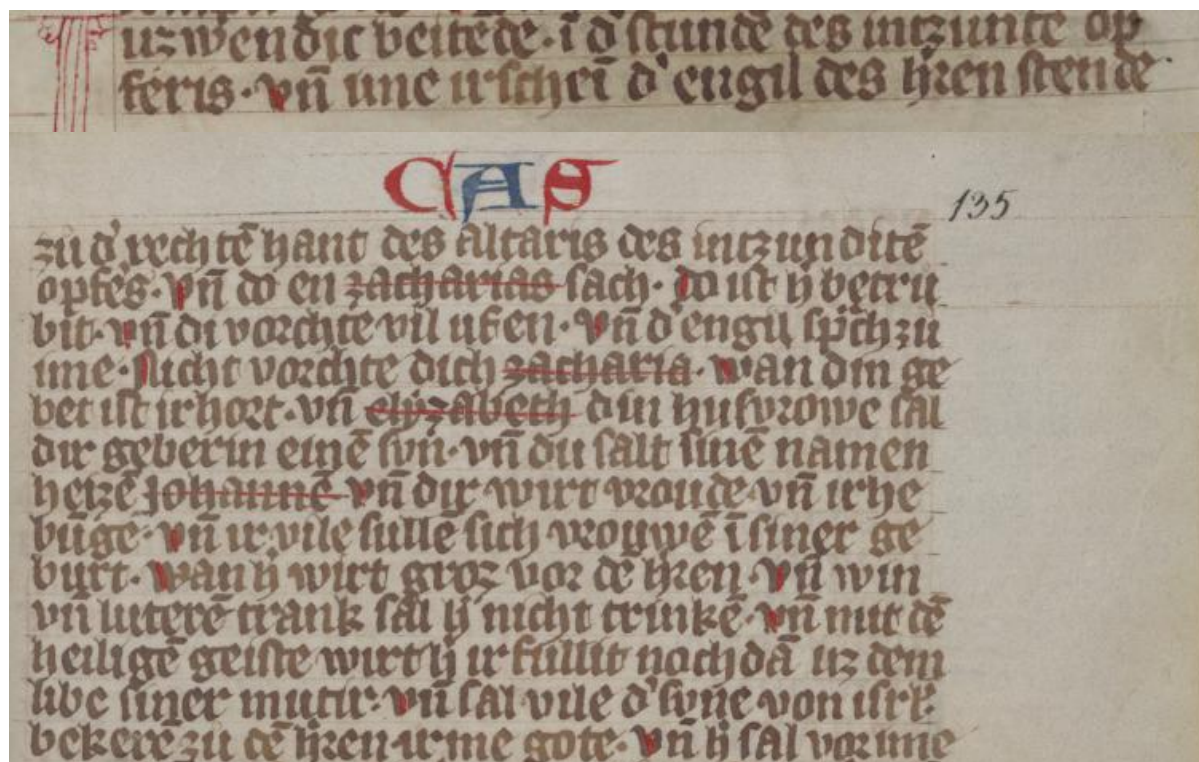 uzwendic beitede · ī d' stunde des intzunte op
feris · vn̄ ime irschei d' engil des h'ren stende
CAS
135
zu d' rechtē hant des altaris des intzunditē
opfe's · Vn̄ do en zacharias sach · Do ist h' betru
bit · vn̄ di vorchte vil uf en · Vn̄ d' engil sp'ch zu
ime · Nicht vorchte dich zacharia · Wan din ge
bet ist irhort · vn̄ elyzabeth din husvrowe sal
dir geberin einē svn · vn̄ du salt sinē namen
heizē Johannē Vn̄ dir wirt vroude vn̄ irhe
bu'ge · Vn̄ ir vile sullē sich vrouwē ī siner ge
burt · Wan h' wirt groz vor dē h'ren · Vn̄ win
vn̄ luterē trank sal h' nicht trinkē · Vn̄ mit dē
heiligē geiste wirt h' irfullit noch dā uz dem
libe siner mutir · Vn̄ sal vile d' svne von isrl'
bekerē zu dē h'ren irme gote · Vn̄ h' sal vor ime